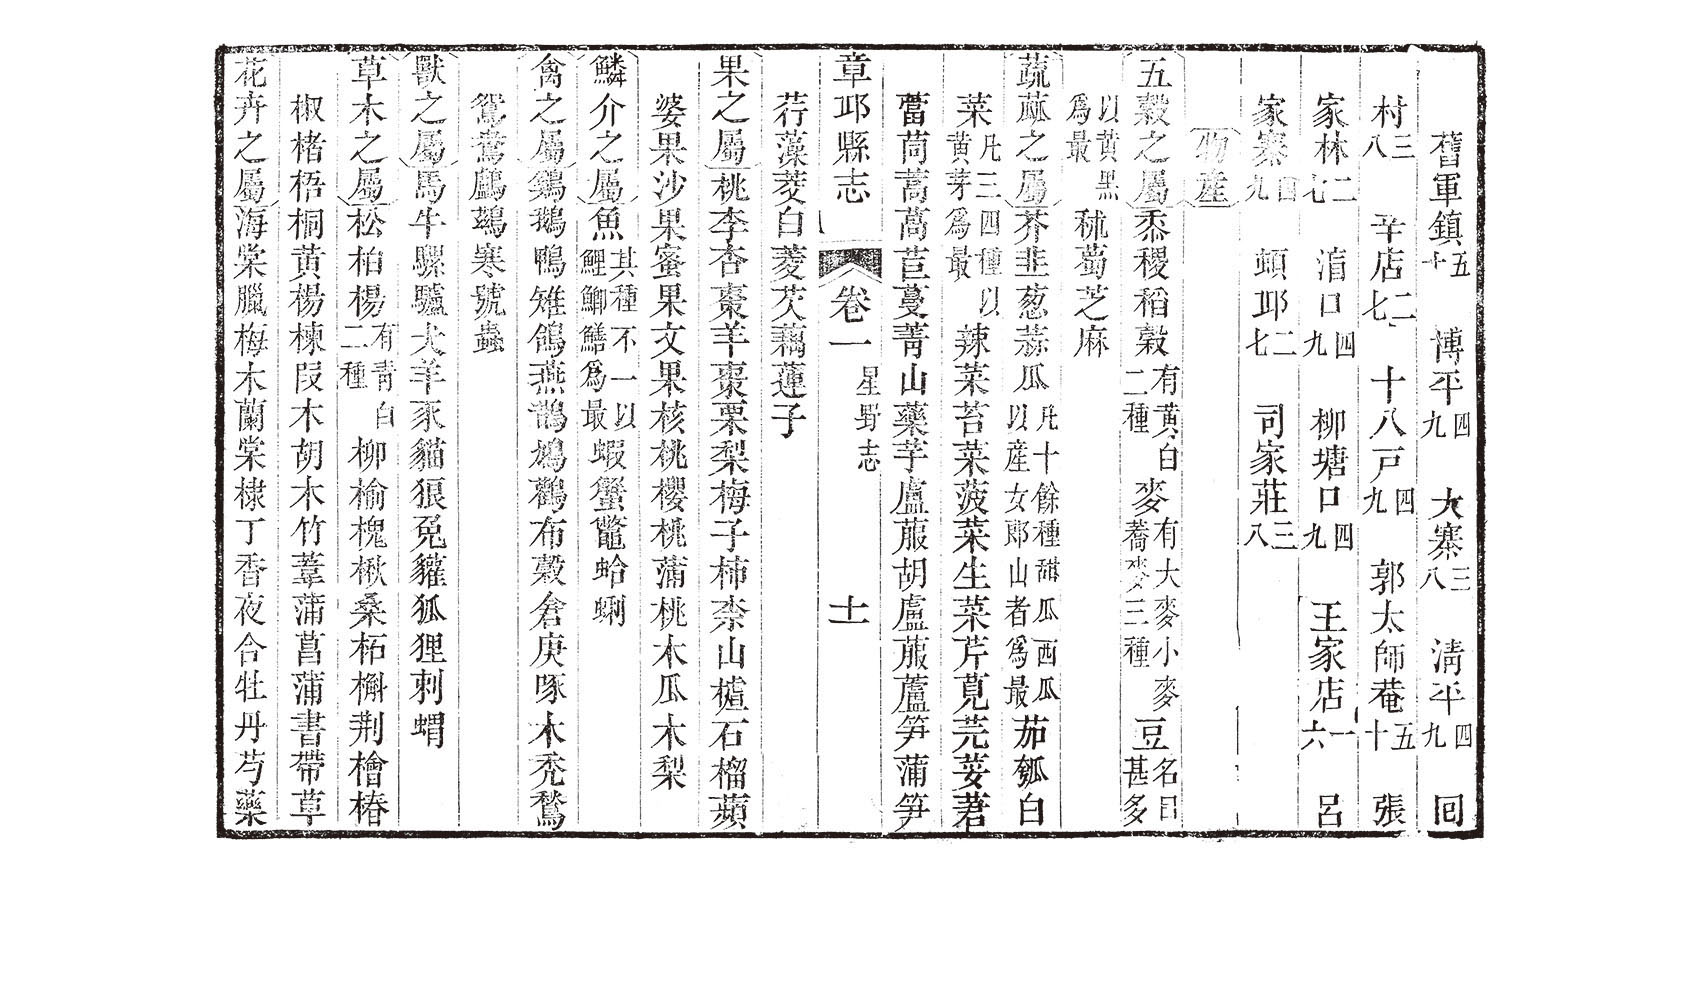 舊軍鎮五十　博平四九　大寨三八　清平四九　回
村三八　辛店二七　十八戸四九　郭太師菴五十　張
家林二七　淯口四九　柳塘口四九　王家店一六　呂
家寨四九　頓邱二七　司家莊三八
物產
五穀之屬黍稷稻穀有黄白二種麥有大麥小麥蕎麥三種豆名目甚多
以黄黑爲最秫蜀芝麻
蔬蓏之屬芥韭葱蒜瓜凡十餘種甜瓜西瓜以産女郎山者爲最茄瓠白
菜凡三四種以黄芽爲最辣菜苔菜菠菜生菜芹莧芫荽莙
薘茼蒿萵苣蔓菁山藥芋盧菔胡盧菔蘆笋蒲笋
章邱縣志　卷一　星野志　十一
荇藻茭白菱芡藕蓮子
果之屬桃李杏棗羊棗栗梨梅子柿柰山樝石榴蘋
婆果沙果蜜果文果核桃櫻桃蒲桃木瓜木梨
鱗介之屬魚其種不一以鯉鯽鱔爲最蝦蟹鼈蛤蜊
禽之屬鷄鵝鴨雉鴿燕鵲鳩鶴布穀倉庚啄木禿鶖
鴛鴦鸕鷀寒號蟲
獸之屬馬牛騾驢犬羊豕貓狼兎獾狐狸刺蝟
草木之屬松柏楊有青白二種柳榆槐楸桑柘槲荆檜椿
椒楮梧桐黄楊楝椴木胡木竹葦蒲菖蒲書帶草
花卉之屬海棠臘梅木蘭棠棣丁香夜合牡丹芍藥